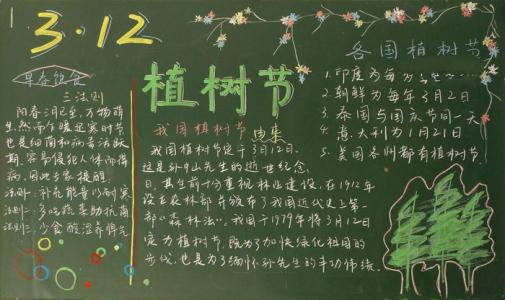 3·12
植树节
早春饮食
三法则
阳春三月已至,万物萌
生,然而乍暖还寒时节
也是细菌和病毒活跃
期,容易侵犯人体而得
病。因此专家提醒
法则一:补充能量以耐寒
法则二:多吃蔬菜助抗菌
法则三:少食酸温养脾气
我国植树节 由来
我国植树节定于3月12日,
这是孙中山先生的逝世纪念
日,其生前十分重视林业建设,在1912年
设立农林部并颁布了我国近代史上第一
部《森林法》。我国于1979年将3月12日
定为植树节,既为了加快绿化祖国的
步伐,也是为了缅怀孙先生的丰功伟绩。
各国植树节
1.印度为每
2.朝鲜为每年3月2日
3.泰国与国庆节同一天
4.意大利为1月21日
5.美国各州都有植树节